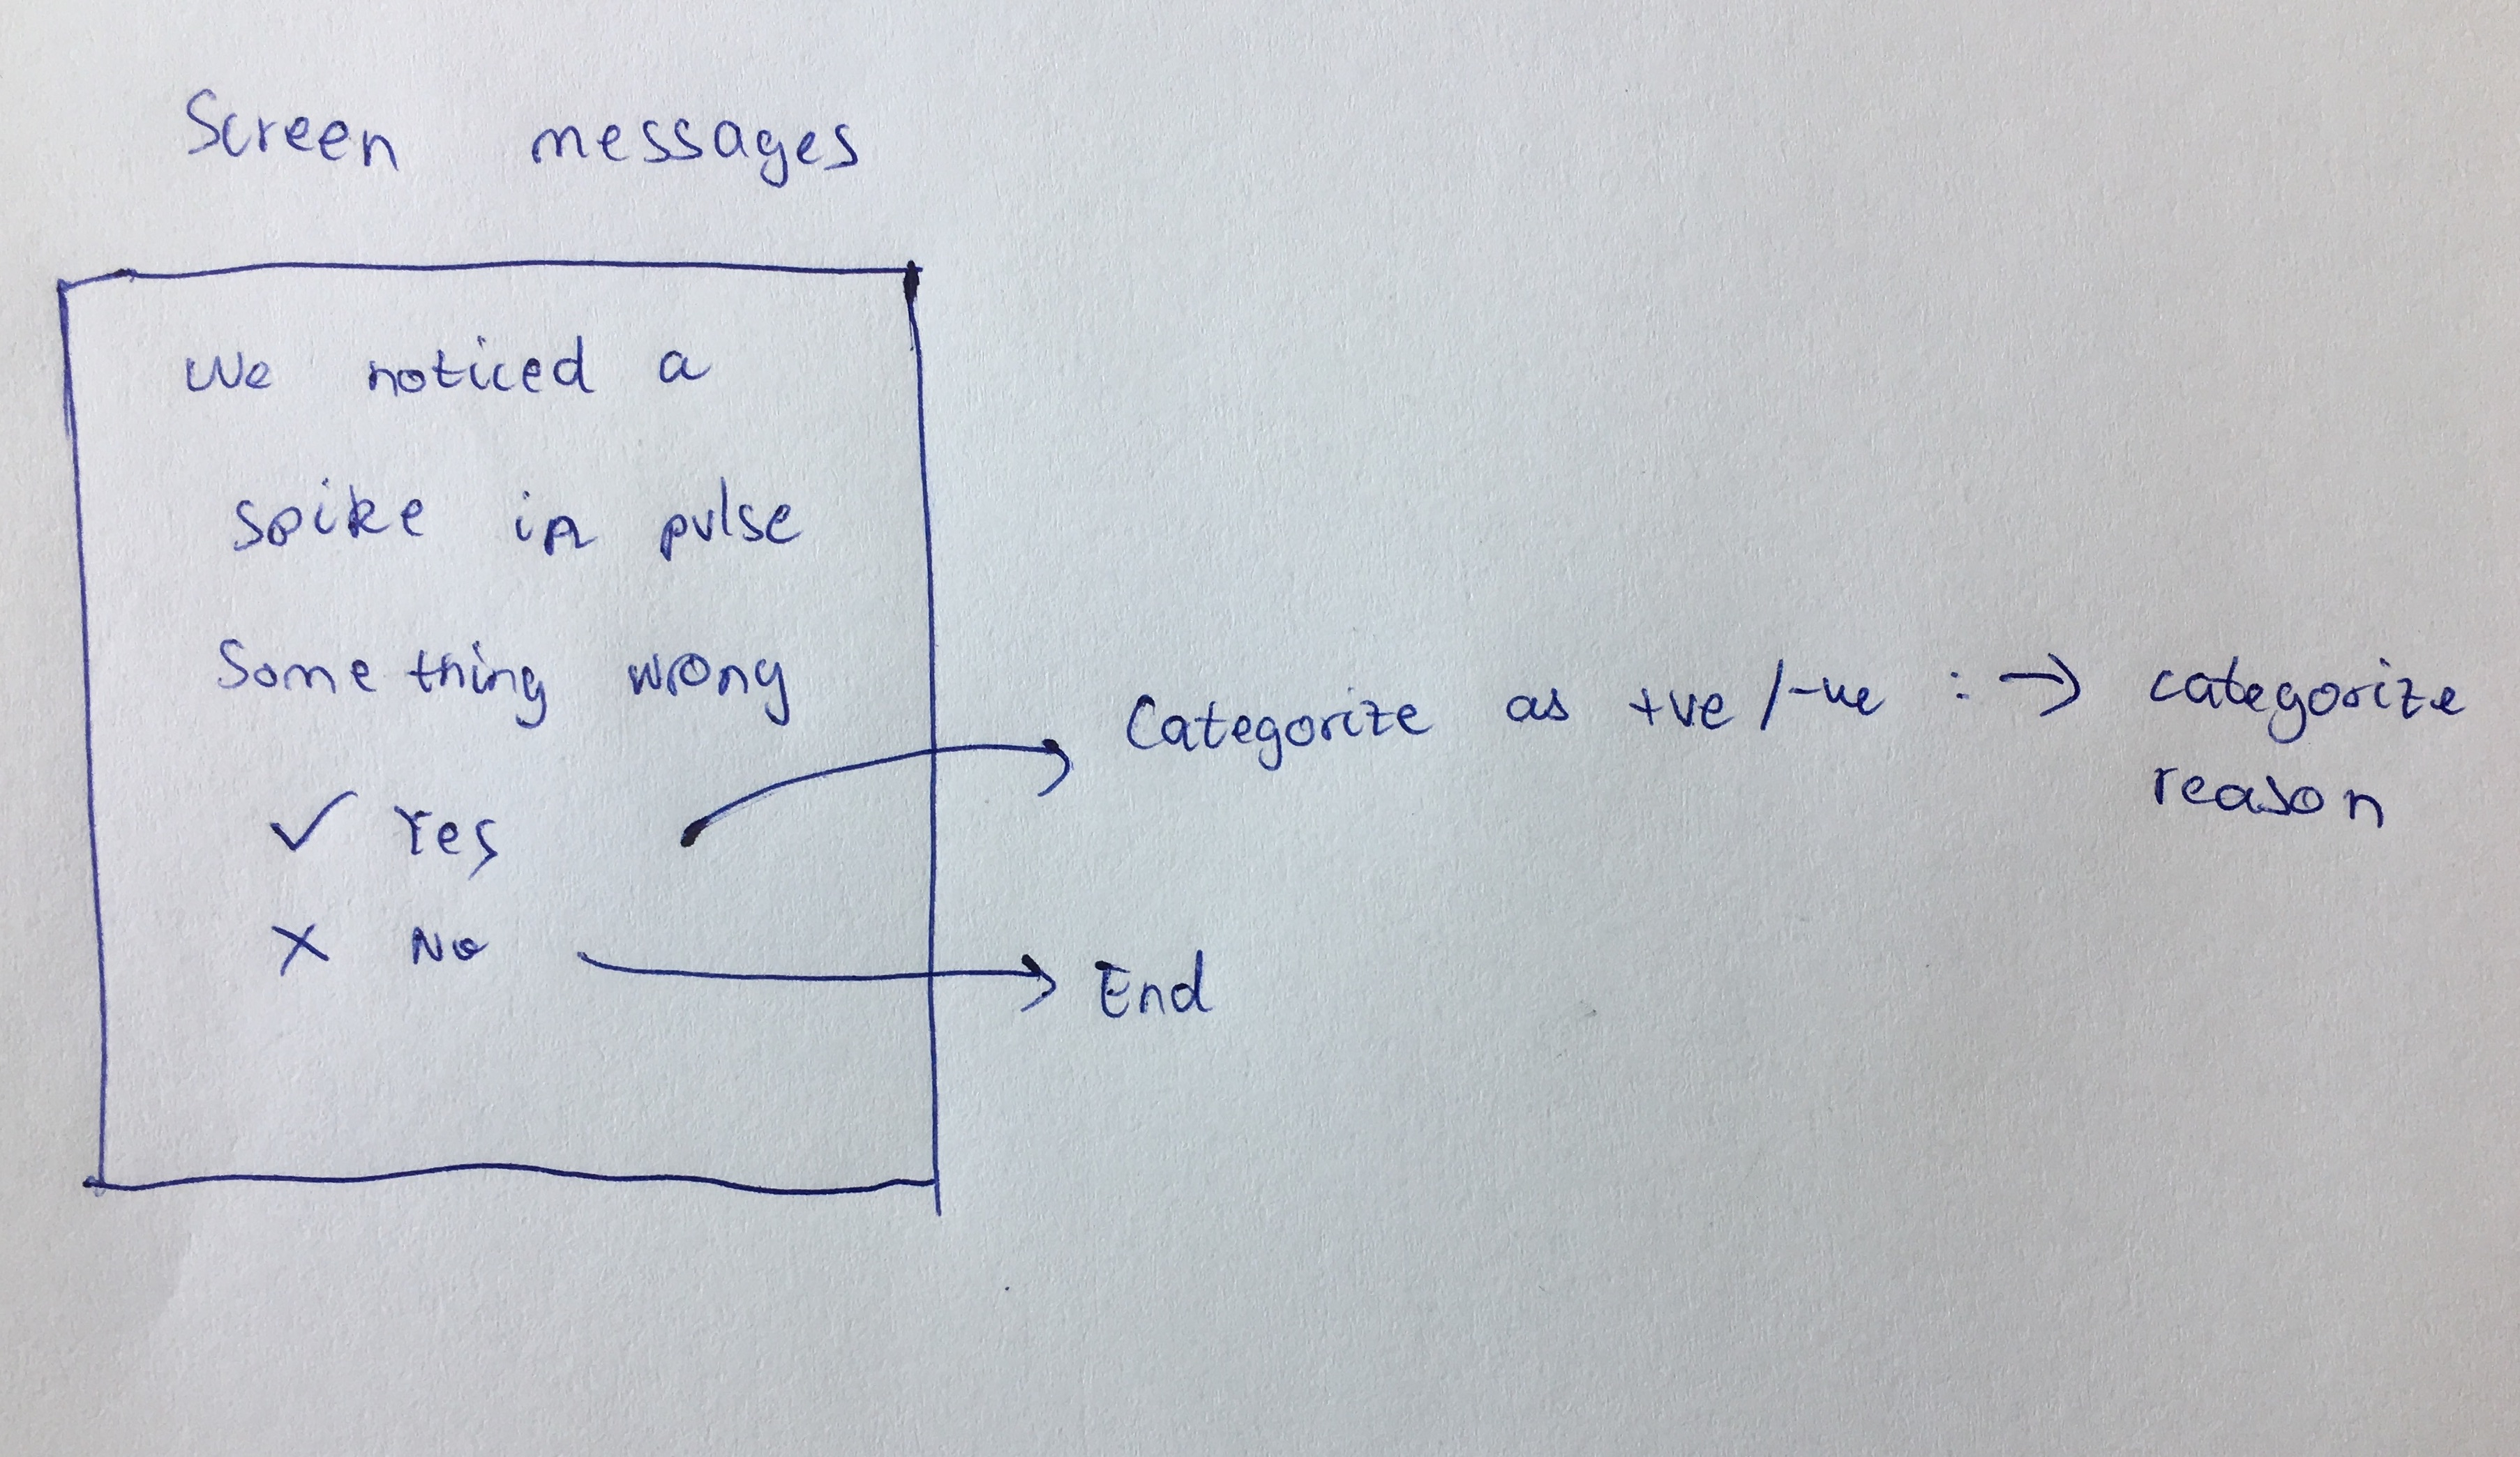 Screen messages
We noticed a
spike in pulse
Something wrong
✓ Yes
X No
Categorize as +ve/-ve : → categorize
reason
End